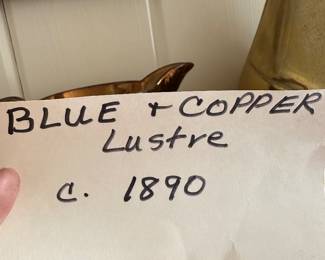 BLUE + COPPER
Lustre
c. 1890